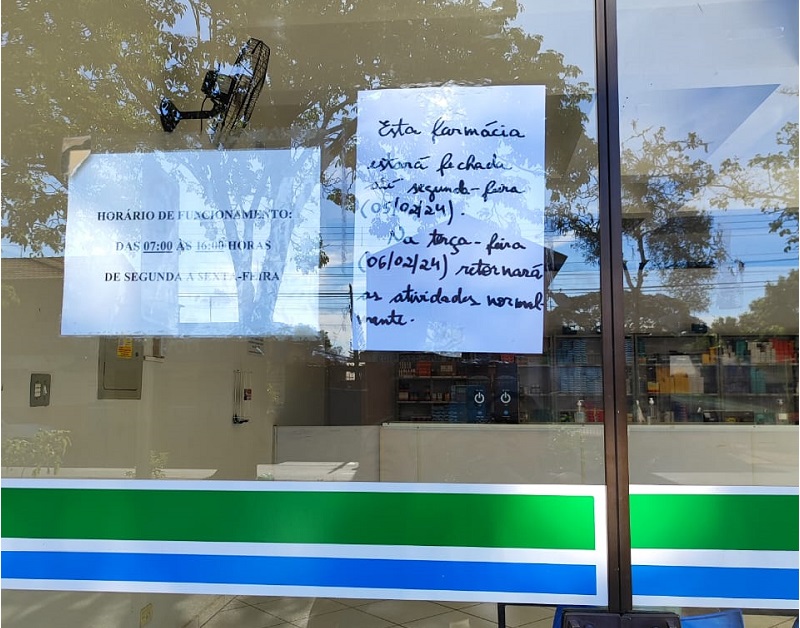 HORÁRIO DE FUNCIONAMENTO:
DAS 07:00 ÀS 16:00 HORAS
DE SEGUNDA A SEXTA-FEIRA
Esta farmácia
estará fechada
até segunda-feira
(05/02/24).
Na terça-feira
(06/02/24) retornará
as atividades normal-
mente.